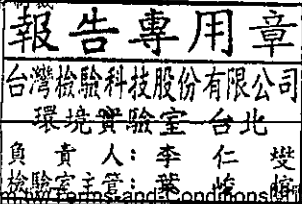 報告專用章
台灣檢驗科技股份有限公司
環境實驗室 台北
負責人:李仁燮
檢驗室主管:葉峻
Terms-and-Conditions